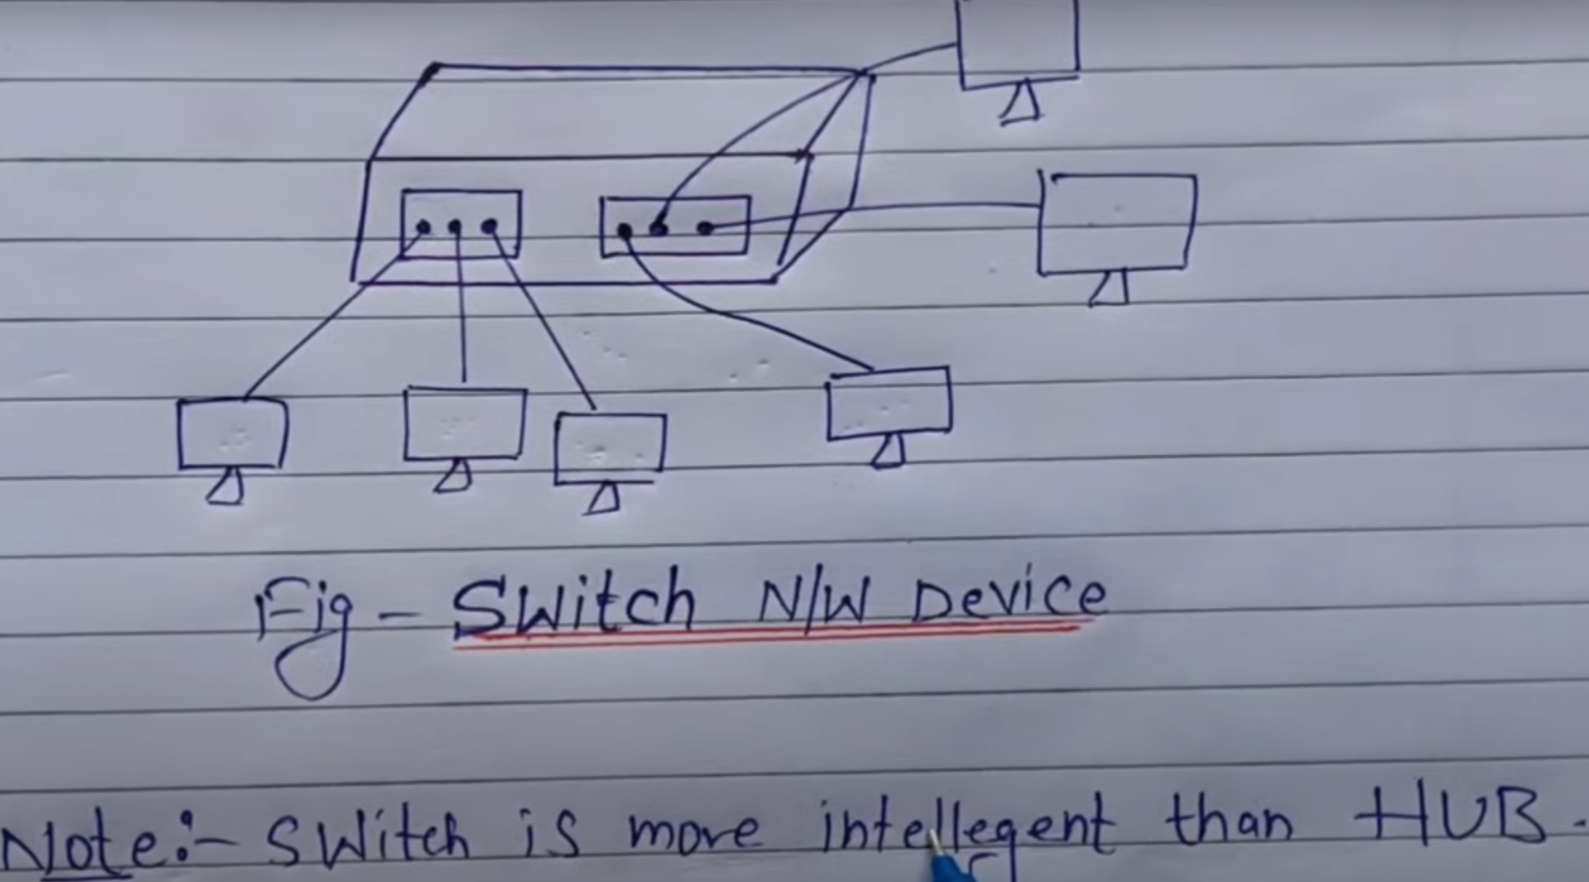 Fig - Switch N/W Device
Note:- Switch is more intellegent than HUB.